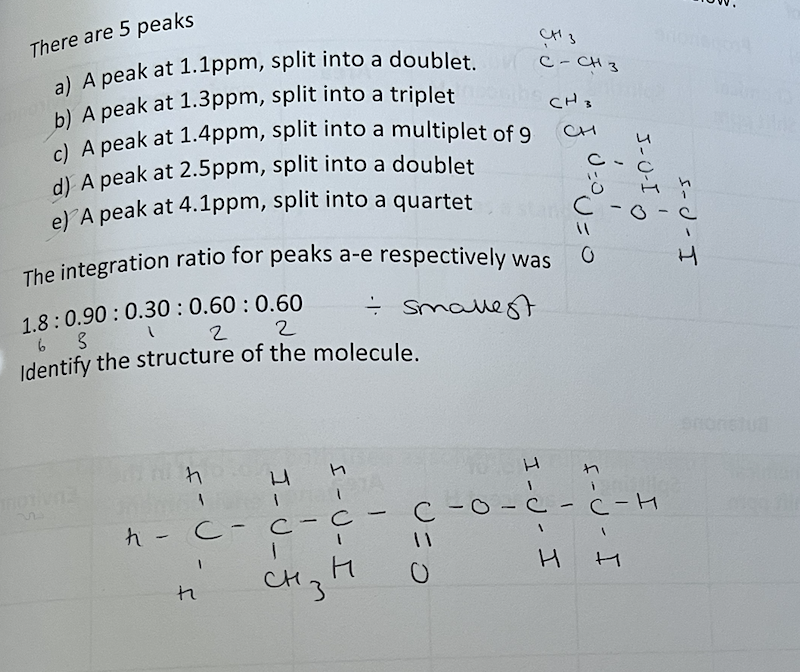 There are 5 peaks
a) A peak at 1.1ppm, split into a doublet.
b) A peak at 1.3ppm, split into a triplet
c) A peak at 1.4ppm, split into a multiplet of 9
d) A peak at 2.5ppm, split into a doublet
e) A peak at 4.1ppm, split into a quartet
CH3
C - CH3
CH3
CH
H
C - C
O H h
C - O - C
O H
The integration ratio for peaks a-e respectively was
1.8 : 0.90 : 0.30 : 0.60 : 0.60 ÷ smallest
6 3 1 2 2
Identify the structure of the molecule.
h H h H h
h - C - C - C - C - O - C - C - H
h CH3 H O H H